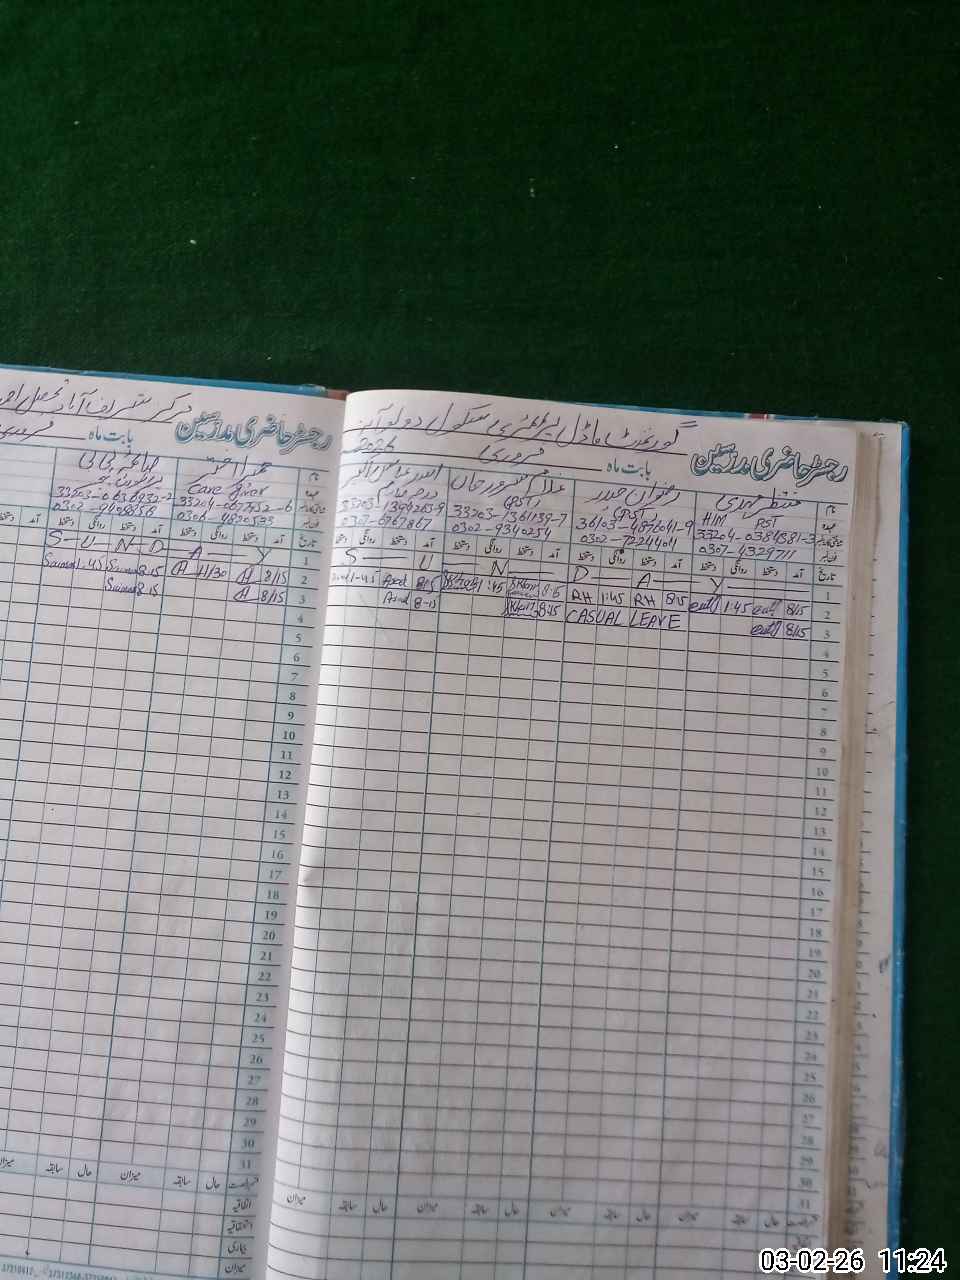 گورنمنٹ ماڈل پرائمری سکول
رجسٹر حاضری مدرسین
بابت ماہ فروری 2026
نام منتظر مہدی رضوان حیدر غلام سرور خان
عہدہ H/M PST (PST) (PST)
33204-0384381-3 36103-4896041-9 33203-1361139-7 33203-1394263-9
0307-4329711 0302-7224401 0302-9340254 0307-6767867
تاریخ آمد دستخط روانگی دستخط آمد دستخط روانگی دستخط آمد دستخط روانگی دستخط آمد دستخط روانگی دستخط
1 S U N D A Y
2 8/15 1:45 8/15 RH 1:45 RH 8:15 1:45 Asad 8/15 1-45
3 8/15 CASUAL LEAVE 8:15 Asad 8-15
4
5
6
7
8
9
10
11
12
13
14
15
16
17
18
19
20
21
22
23
24
25
26
27
28
29
30
31
حال سابقہ میزان حال سابقہ میزان حال سابقہ میزان حال سابقہ میزان
مرکز شریف آباد تحصیل
رجسٹر حاضری مدرسین
بابت ماہ فروری
نام
عہدہ Care Giver
33204-0677452-6 33203-0636932-2
0306-4820533 0302-9608856
تاریخ آمد دستخط روانگی دستخط آمد دستخط روانگی دستخط
1 S-U-N-D-A-Y
2 8/15 11/30 Saima 8:15 Saima 1.45
3 8/15 Saima 8:15
4
5
6
7
8
9
10
11
12
13
14
15
16
17
18
19
20
21
22
23
24
25
26
27
28
29
30
31
حال سابقہ میزان حال سابقہ میزان
اتفاقیہ
استحقاقیہ
بیماری
میزان
03-02-26 11:24